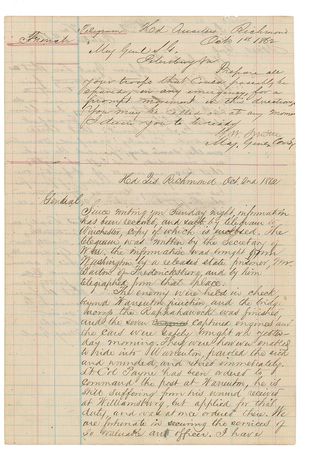 Telegram Hd Quarters Richmond
Oct 1st 1862
French
Maj Genl S. G.
Petersburg Va
Prepare all
your troops that could possibly be
spared, in any emergency, for a
prompt movement in this direction.
You may be called on at any moment
I desire you to be ready
G. W. Smith
Maj. Genl Comdg
Hd. Qrs. Richmond Oct 2nd 1862
General,
Since writing you Sunday night, information
has been received, and sent by telegram to
Winchester, copy of which is inclosed. The
telegram was written by the Secretary of
War, the information was brought from
Washington by a released state prisoner Mr
Barton of Fredericksburg, and by him
telegraphed from that place.
The enemy were held in check,
beyond Warrenton junction, and the bridge
across the Rappahannock was finished,
and the seven captured engines and
the cars were safely brought off yester-
day morning. They were however enabled
to ride into Warrenton, paroled the sick
and wounded and retired immediately.
Lt Col Payne has been ordered to
command the post at Warrenton, he is
still suffering from his wound received
at Williamsburg but applied for that
duty, and was at once ordered there. We
are fortunate in securing the services of
so valuable an officer. I have